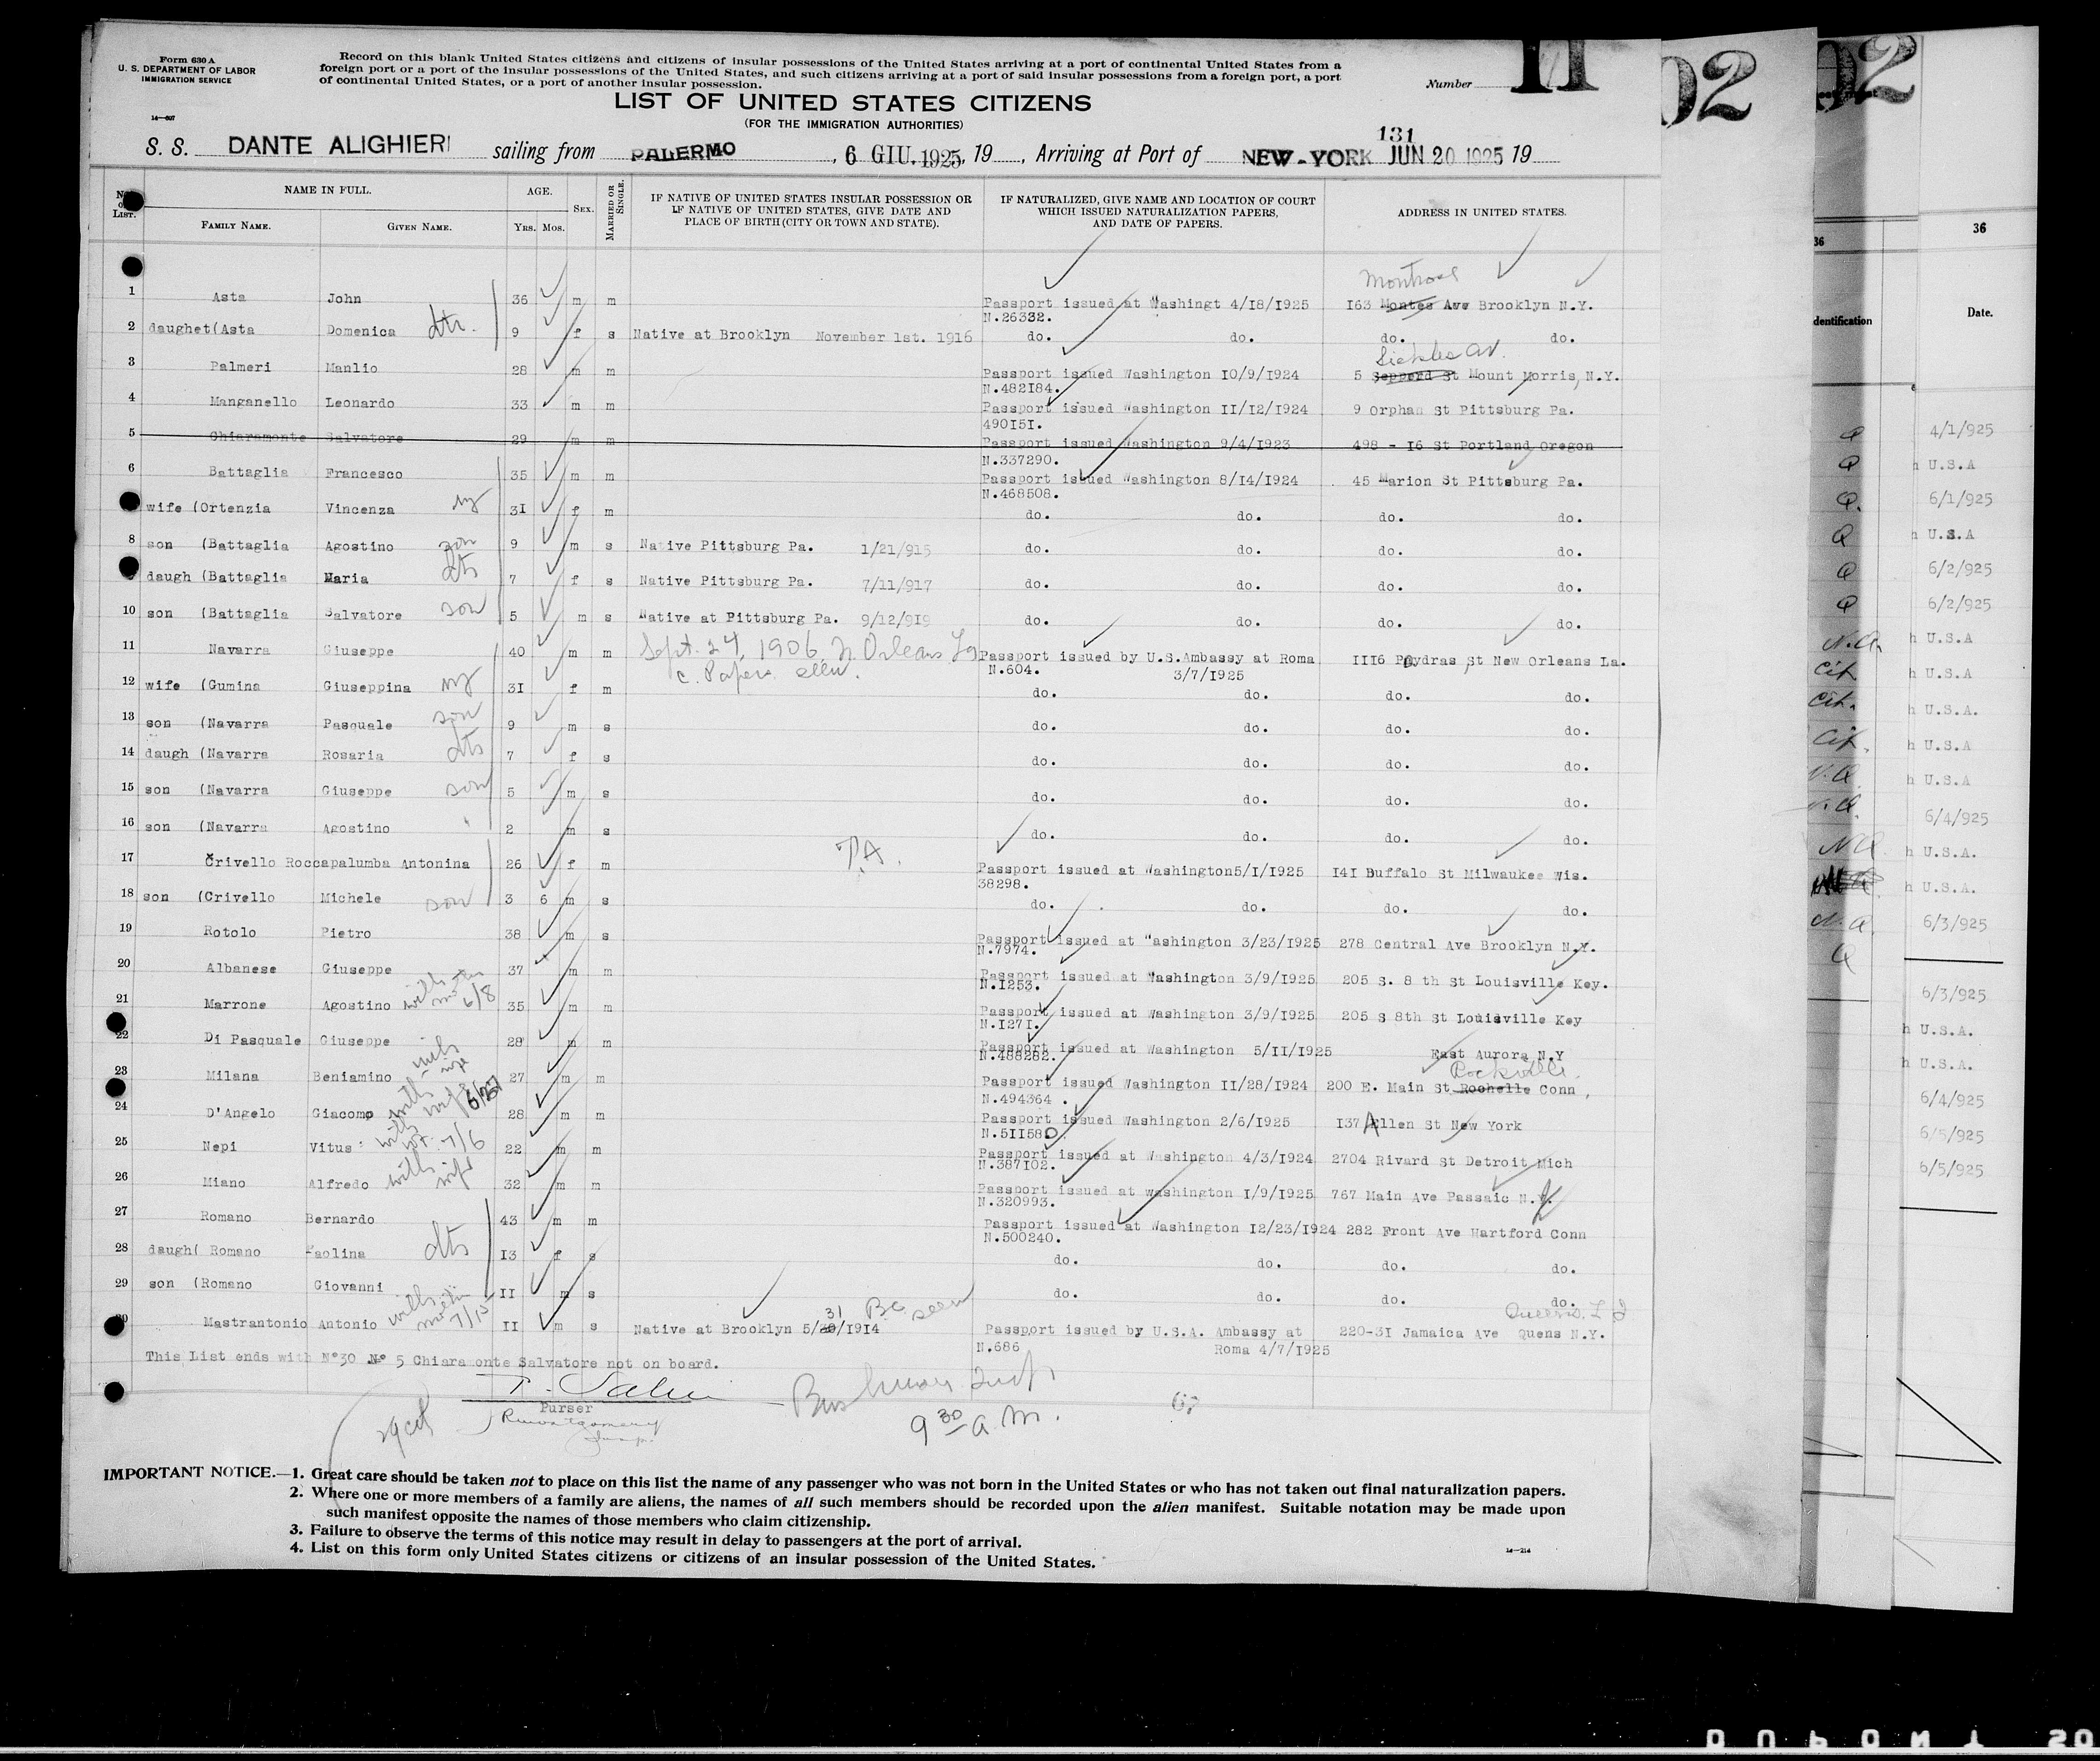 Form 630 A
U. S. DEPARTMENT OF LABOR
IMMIGRATION SERVICE
14—607
Record on this blank United States citizens and citizens of insular possessions of the United States arriving at a port of continental United States from a
foreign port or a port of the insular possessions of the United States, and such citizens arriving at a port of said insular possessions from a foreign port, a port
of continental United States, or a port of another insular possession.
Number 11
LIST OF UNITED STATES CITIZENS
(FOR THE IMMIGRATION AUTHORITIES)
131
S. S. DANTE ALIGHIERI sailing from PALERMO, 6 GIU. 1925, 19 , Arriving at Port of NEW-YORK JUN 20 1925 19
No. on List. NAME IN FULL. AGE. Sex. Married or Single. IF NATIVE OF UNITED STATES INSULAR POSSESSION OR IF NATIVE OF UNITED STATES, GIVE DATE AND PLACE OF BIRTH (CITY OR TOWN AND STATE). IF NATURALIZED, GIVE NAME AND LOCATION OF COURT WHICH ISSUED NATURALIZATION PAPERS, AND DATE OF PAPERS. ADDRESS IN UNITED STATES.
Family Name. Given Name. Yrs. Mos.
Montrose
1 Asta John 36 m m Passport issued at Washingt 4/18/1925 163 Montes Ave Brooklyn N.Y.
N.26332.
2 daughet(Asta Domenica dtr. 9 f s Native at Brooklyn November 1st. 1916 do. do. do. do.
Sickles av.
3 Palmeri Manlio 28 m m Passport issued Washington 10/9/1924 5 Sepperd St Mount Morris, N.Y.
N.482184.
4 Manganello Leonardo 33 m m Passport issued Washington 11/12/1924 9 Orphan St Pittsburg Pa.
490151.
5 Chiaramonte Salvatore 29 m m Passport issued Washington 9/4/1923 498 - 16 St Portland Oregon
N.337290.
6 Battaglia Francesco 35 m m Passport issued Washington 8/14/1924 45 Marion St Pittsburg Pa.
N.468508.
wife (Ortenzia Vincenza 31 f m do. do. do. do.
8 son (Battaglia Agostino son 9 m s Native Pittsburg Pa. 1/21/915 do. do. do. do.
daugh (Battaglia Maria dts 7 f s Native Pittsburg Pa. 7/11/917 do. do. do. do.
10 son (Battaglia Salvatore son 5 m s Native at Pittsburg Pa. 9/12/919 do. do. do. do.
11 Navarra Giuseppe 40 m m Sept. 24, 1906 N Orleans La Passport issued by U.S.Ambassy at Roma 1116 Poydras St New Orleans La.
c. Papers seen. N.604. 3/7/1925
12 wife (Gumina Giuseppina 31 f m do. do. do. do.
13 son (Navarra Pasquale son 9 m s do. do. do. do.
14 daugh (Navarra Rosaria dts 7 f s do. do. do. do.
15 son (Navarra Giuseppe son 5 m s do. do. do. do.
16 son (Navarra Agostino 2 m s do. do. do. do.
17 Crivello Roccapalumba Antonina 26 f m P.A. Passport issued at Washington5/1/1925 141 Buffalo St Milwaukee Wis.
38298.
18 son (Crivello Michele son 3 6 m s do. do. do. do.
19 Rotolo Pietro 38 m s Passport issued at Washington 3/23/1925 278 Central Ave Brooklyn N.Y.
N.7974.
20 Albanese Giuseppe 37 m m Passport issued at Washington 3/9/1925 205 S. 8 th St Louisville Key.
N.1253.
21 Marrone Agostino 6/8 35 m m Passport issued at Washington 3/9/1925 205 S 8th St Louisville Key
N.1271.
22 Di Pasquale Giuseppe 28 m m Passport issued at Washington 5/11/1925 East Aurora N.Y
N.488282.
Rockville.
23 Milana Beniamino 27 m m Passport issued Washington 11/28/1924 200 E. Main St Rochelle Conn,
N.494364.
24 D'Angelo Giacomo 28 m m Passport issued Washington 2/6/1925 137 Allen St New York
N.511580.
25 Nepi Vitus 7/6 22 m m Passport issued at Washington 4/3/1924 2704 Rivard St Detroit Mich
N.387102.
26 Miano Alfredo 32 m m Passport issued at washington 1/9/1925 767 Main Ave Passaic N.J.
N.320993.
27 Romano Bernardo 43 m m Passport issued at Washington 12/23/1924 282 Front Ave Hartford Conn
N.500240.
28 daugh( Romano Paolina dts 13 f s do. do. do. do.
29 son (Romano Giovanni 11 m s do. do. do. do.
31 B.c. seen Queens. L I
30 Mastrantonio Antonio 7/15 11 m s Native at Brooklyn 5/28/1914 Passport issued by U.S.A. Ambassy at 220-31 Jamaica Ave Quens N.Y.
N.686 Roma 4/7/1925
This List ends with N°30 N° 5 Chiaramonte Salvatore not on board.
Purser
9 30 a.m.
IMPORTANT NOTICE.—1. Great care should be taken not to place on this list the name of any passenger who was not born in the United States or who has not taken out final naturalization papers.
2. Where one or more members of a family are aliens, the names of all such members should be recorded upon the alien manifest. Suitable notation may be made upon
such manifest opposite the names of those members who claim citizenship.
3. Failure to observe the terms of this notice may result in delay to passengers at the port of arrival.
4. List on this form only United States citizens or citizens of an insular possession of the United States.
14—214
02
02
36
36
dentification
Date.
4/1/925
U.S.A
6/1/925
U.S.A
6/2/925
6/2/925
U.S.A
U.S.A
U.S.A.
U.S.A
U.S.A
6/4/925
U.S.A.
U.S.A.
6/3/925
6/3/925
U.S.A.
U.S.A.
6/4/925
6/5/925
6/5/925